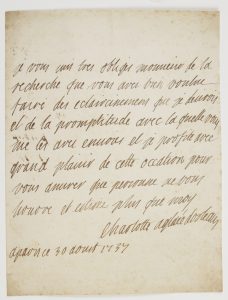 je vous suis tres obligée monsieur de la
recherche que vous avez bien voulue
faire des eclaircissemens que je desirois
et de la promptitude avec la quelle vous
me les avez envoies et je profite avec
grand plaisir de cette occasion pour
vous assurer que personne ne vous
honore et estime plus que moy
Charlotte aglaé
a paris ce 30 aoust 1737